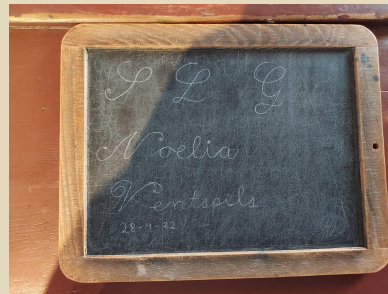 S L G
Noelia
Ventspils
28-4-22